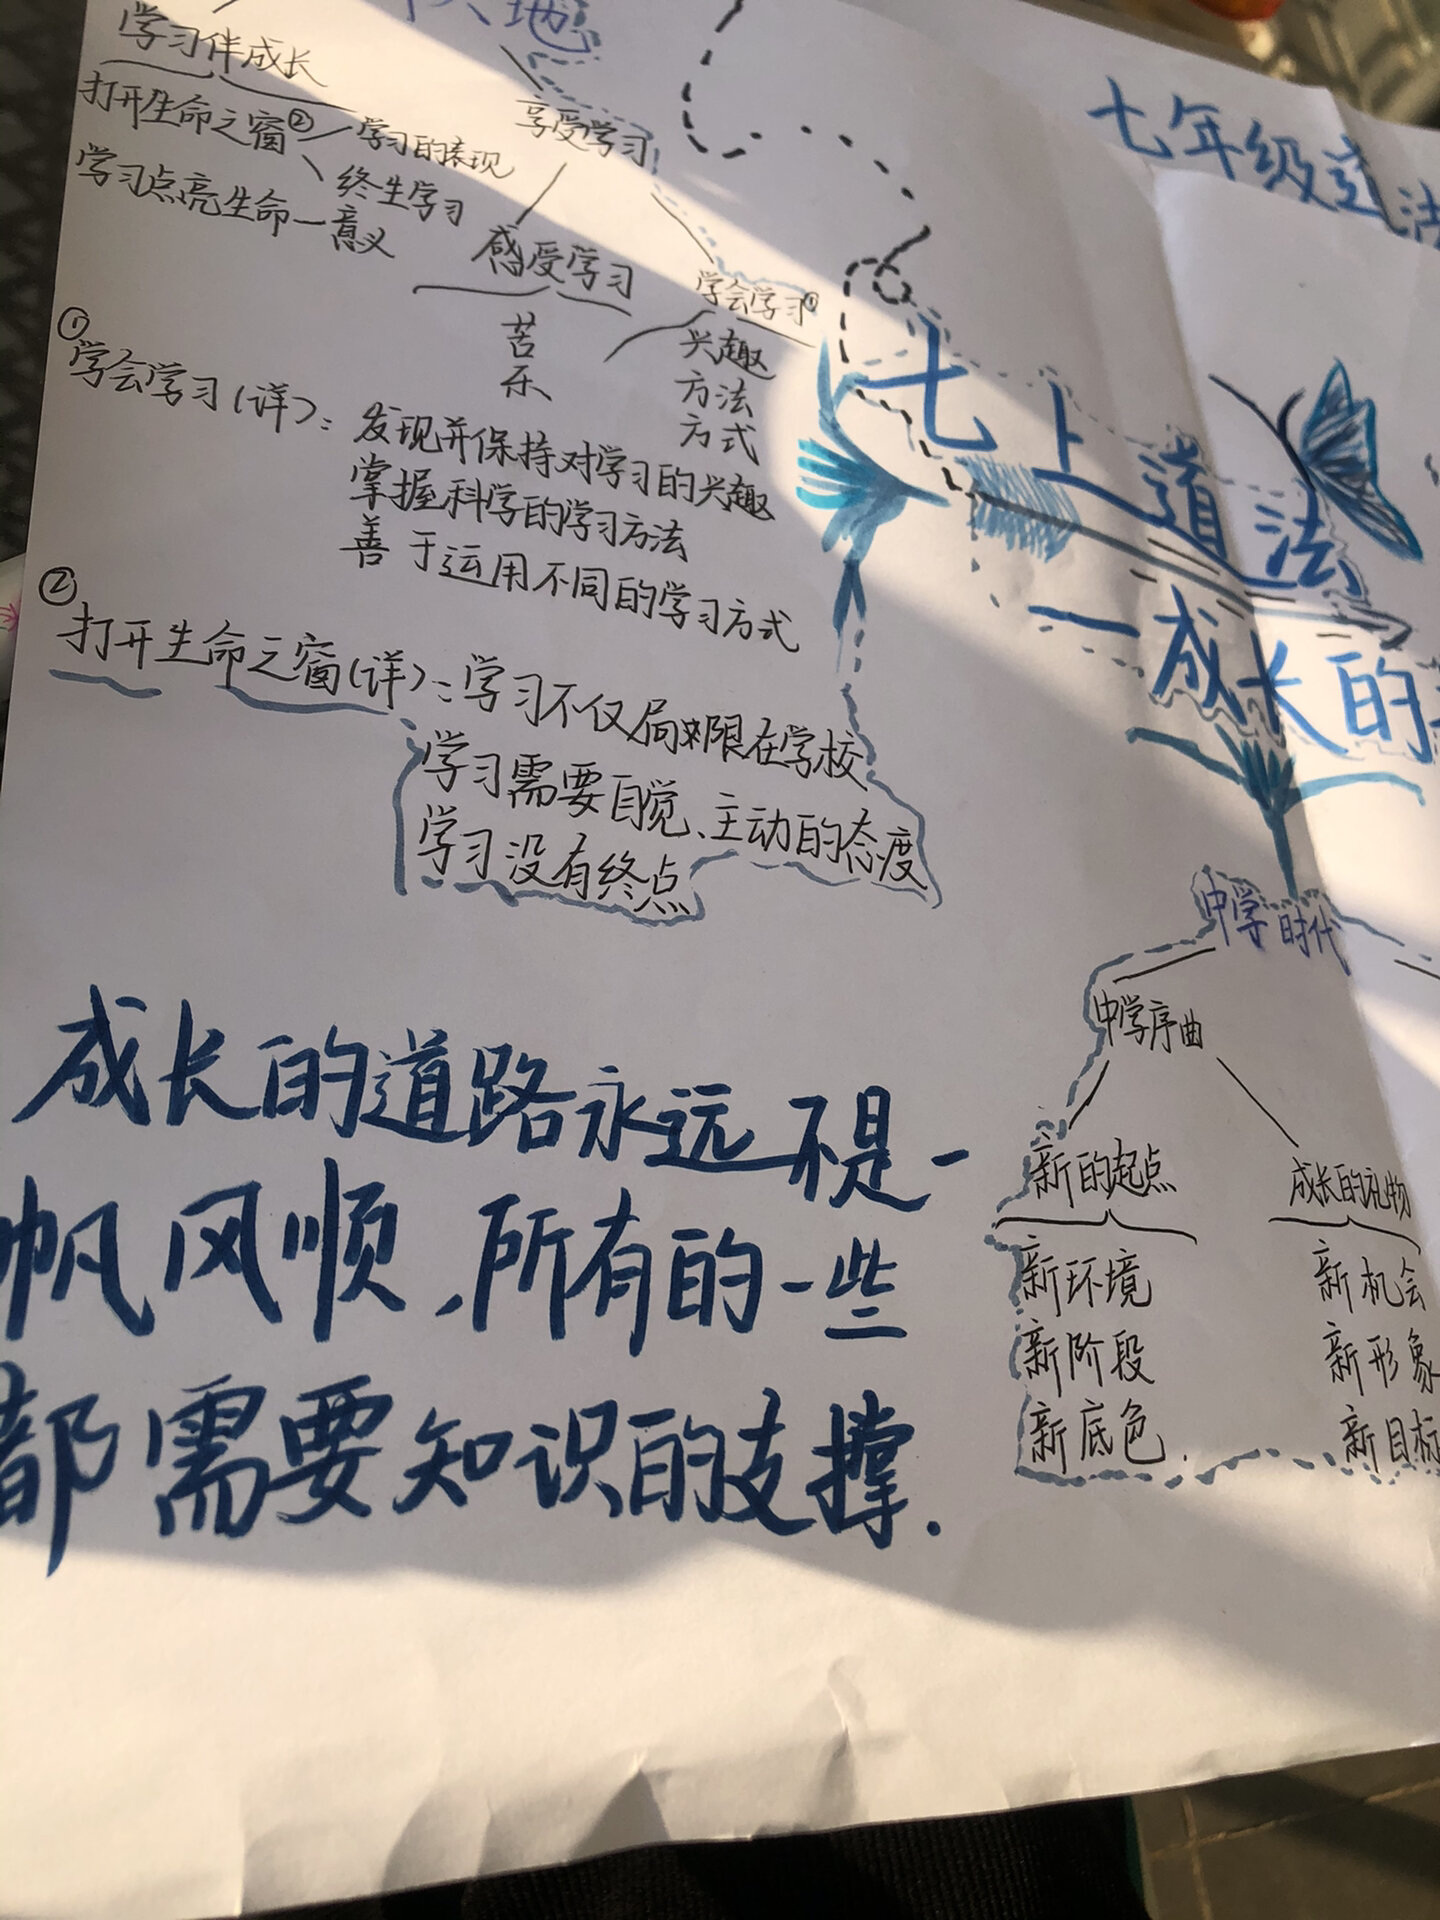 学习伴成长
打开生命之窗②
学习的表现
终生学习
学习点亮生命一意义
享受学习
感受学习
苦
乐
学会学习①
兴趣
方法
方式
①
学会学习(详):
发现并保持对学习的兴趣
掌握科学的学习方法
善于运用不同的学习方式
②
打开生命之窗(详):学习不仅局限在学校
学习需要自觉、主动的态度
学习没有终点
七年级道法
七上道法
一成长的
中学时代
中学序曲
新的起点
新环境
新阶段
新底色.
成长的礼物
新机会
新形象
新目标
成长的道路永远不是一
帆风顺,所有的一些
都需要知识的支撑.